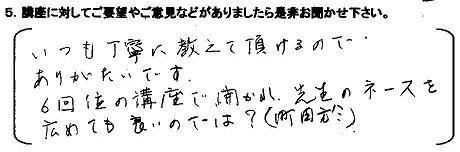 5. 講座に対してご要望やご意見などがありましたら是非お聞かせ下さい。
いつも丁寧に教えて頂けるので
ありがたいです.
6回位の講座で開かれ、先生のネースを
広めても良いのでは?(町田方